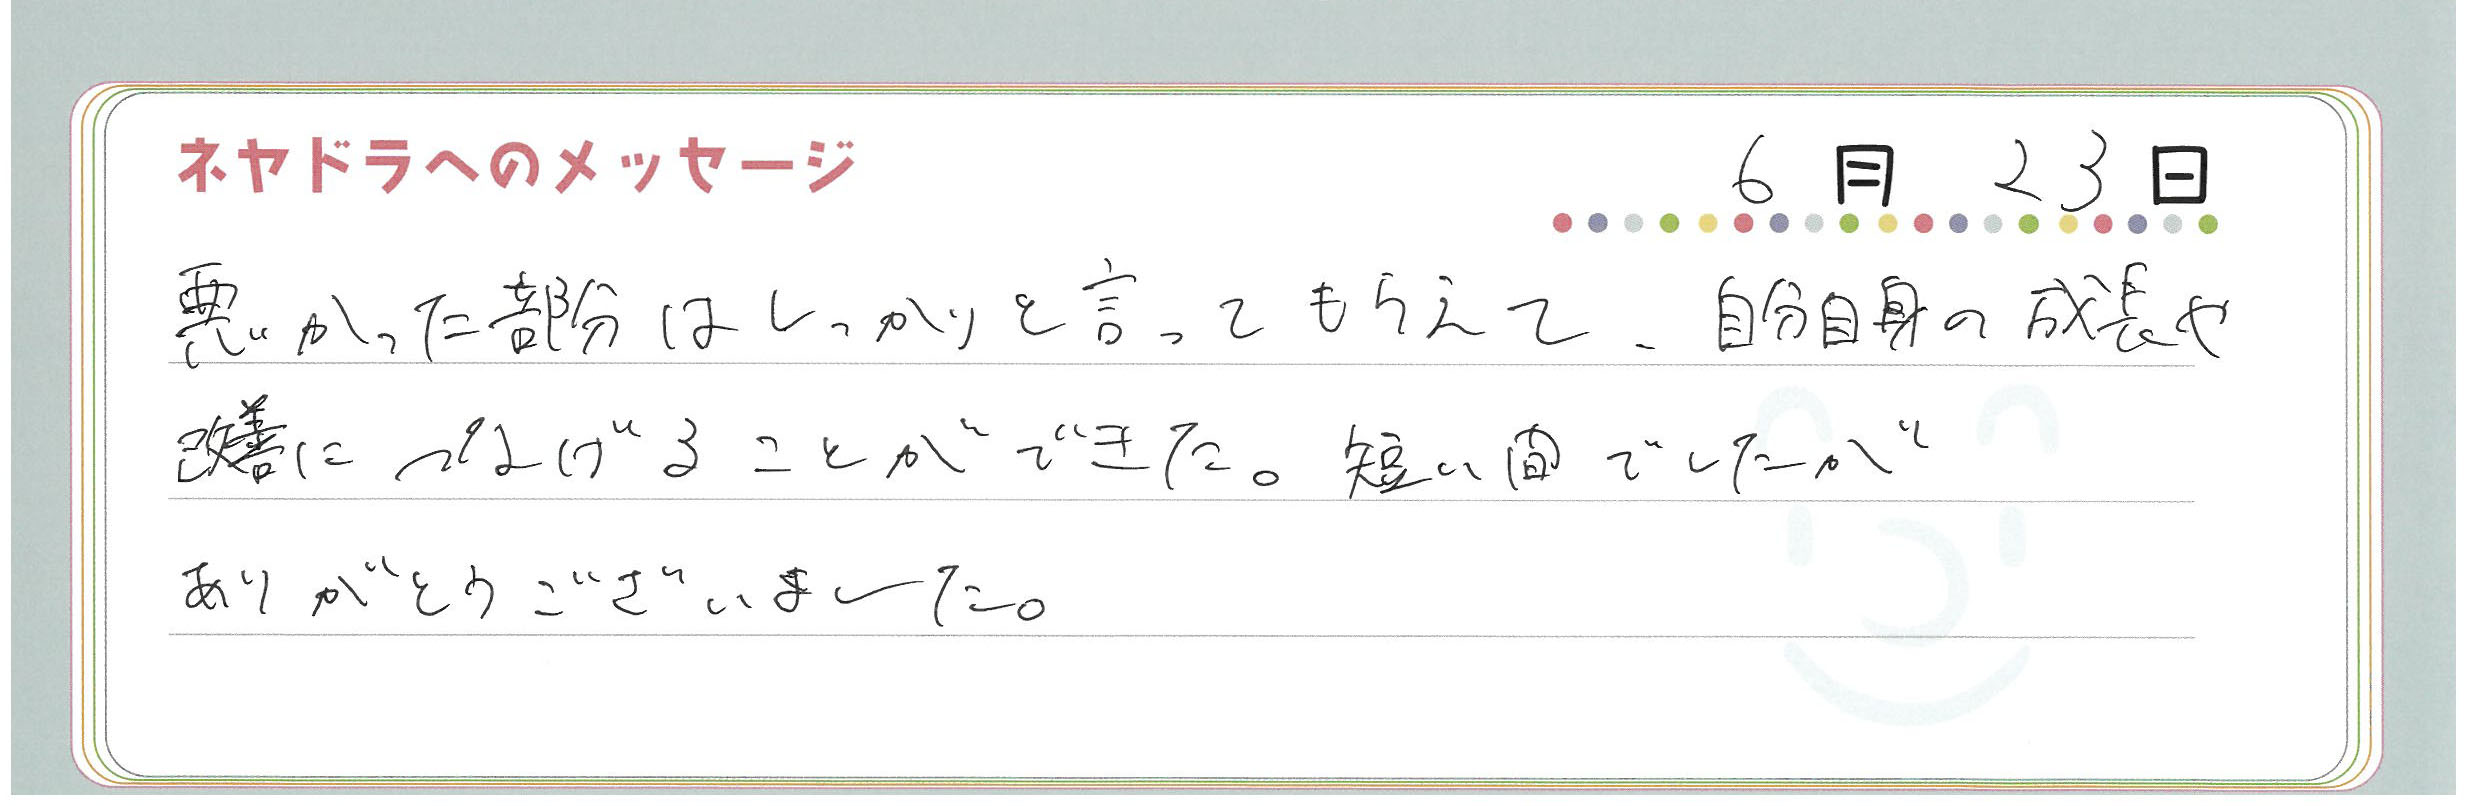 ネヤドラへのメッセージ
6月 23日
悪かった部分はしっかりと言ってもらえて、自分自身の成長や
改善につなげることができた。短い間でしたが
ありがとうございました。